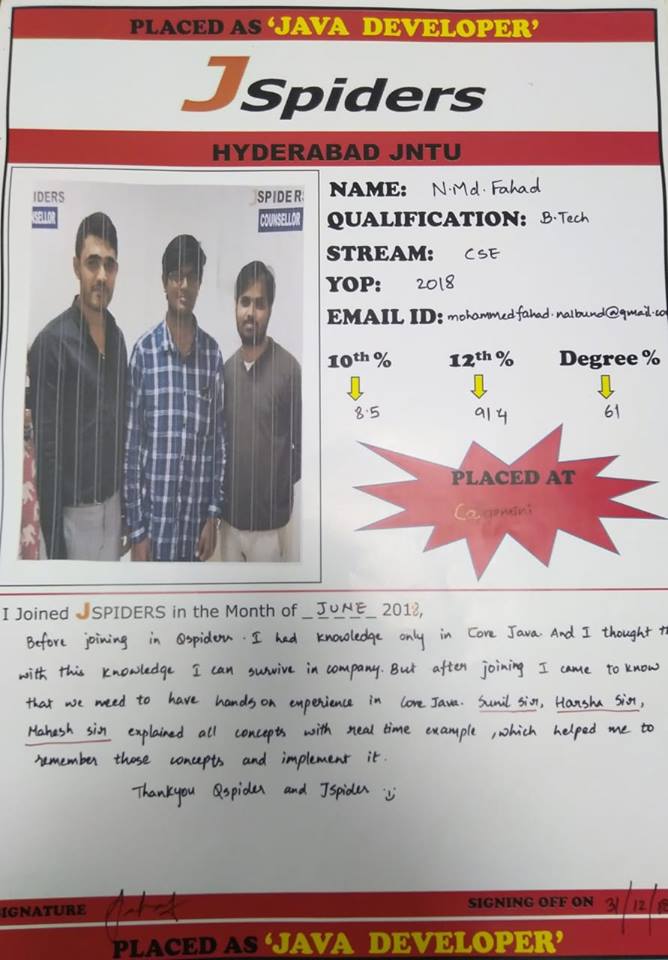 PLACED AS ‘JAVA DEVELOPER’
JSpiders
HYDERABAD JNTU
IDERS
SELLOR
JSPIDER
COUNSELLOR
NAME: N.Md.Fahad
QUALIFICATION: B.Tech
STREAM: CSE
YOP: 2018
EMAIL ID: mohammedfahad.nalbund@gmail.co
10th % 12th % Degree %
8.5 914 61
PLACED AT
Capgemini
I Joined JSPIDERS in the Month of _JUNE_ 2018,
Before joining in Qspiders. I had knowledge only in Core Java. And I thought
with this knowledge I can survive in company. But after joining I came to know
that we need to have hands on experience in Core Java. Sunil sir, Harsha Sir,
Mahesh sir explained all concepts with real time example, which helped me to
remember those concepts and implement it.
Thankyou Qspider and Jspider :)
SIGNATURE
SIGNING OFF ON 31/12/18
PLACED AS ‘JAVA DEVELOPER’